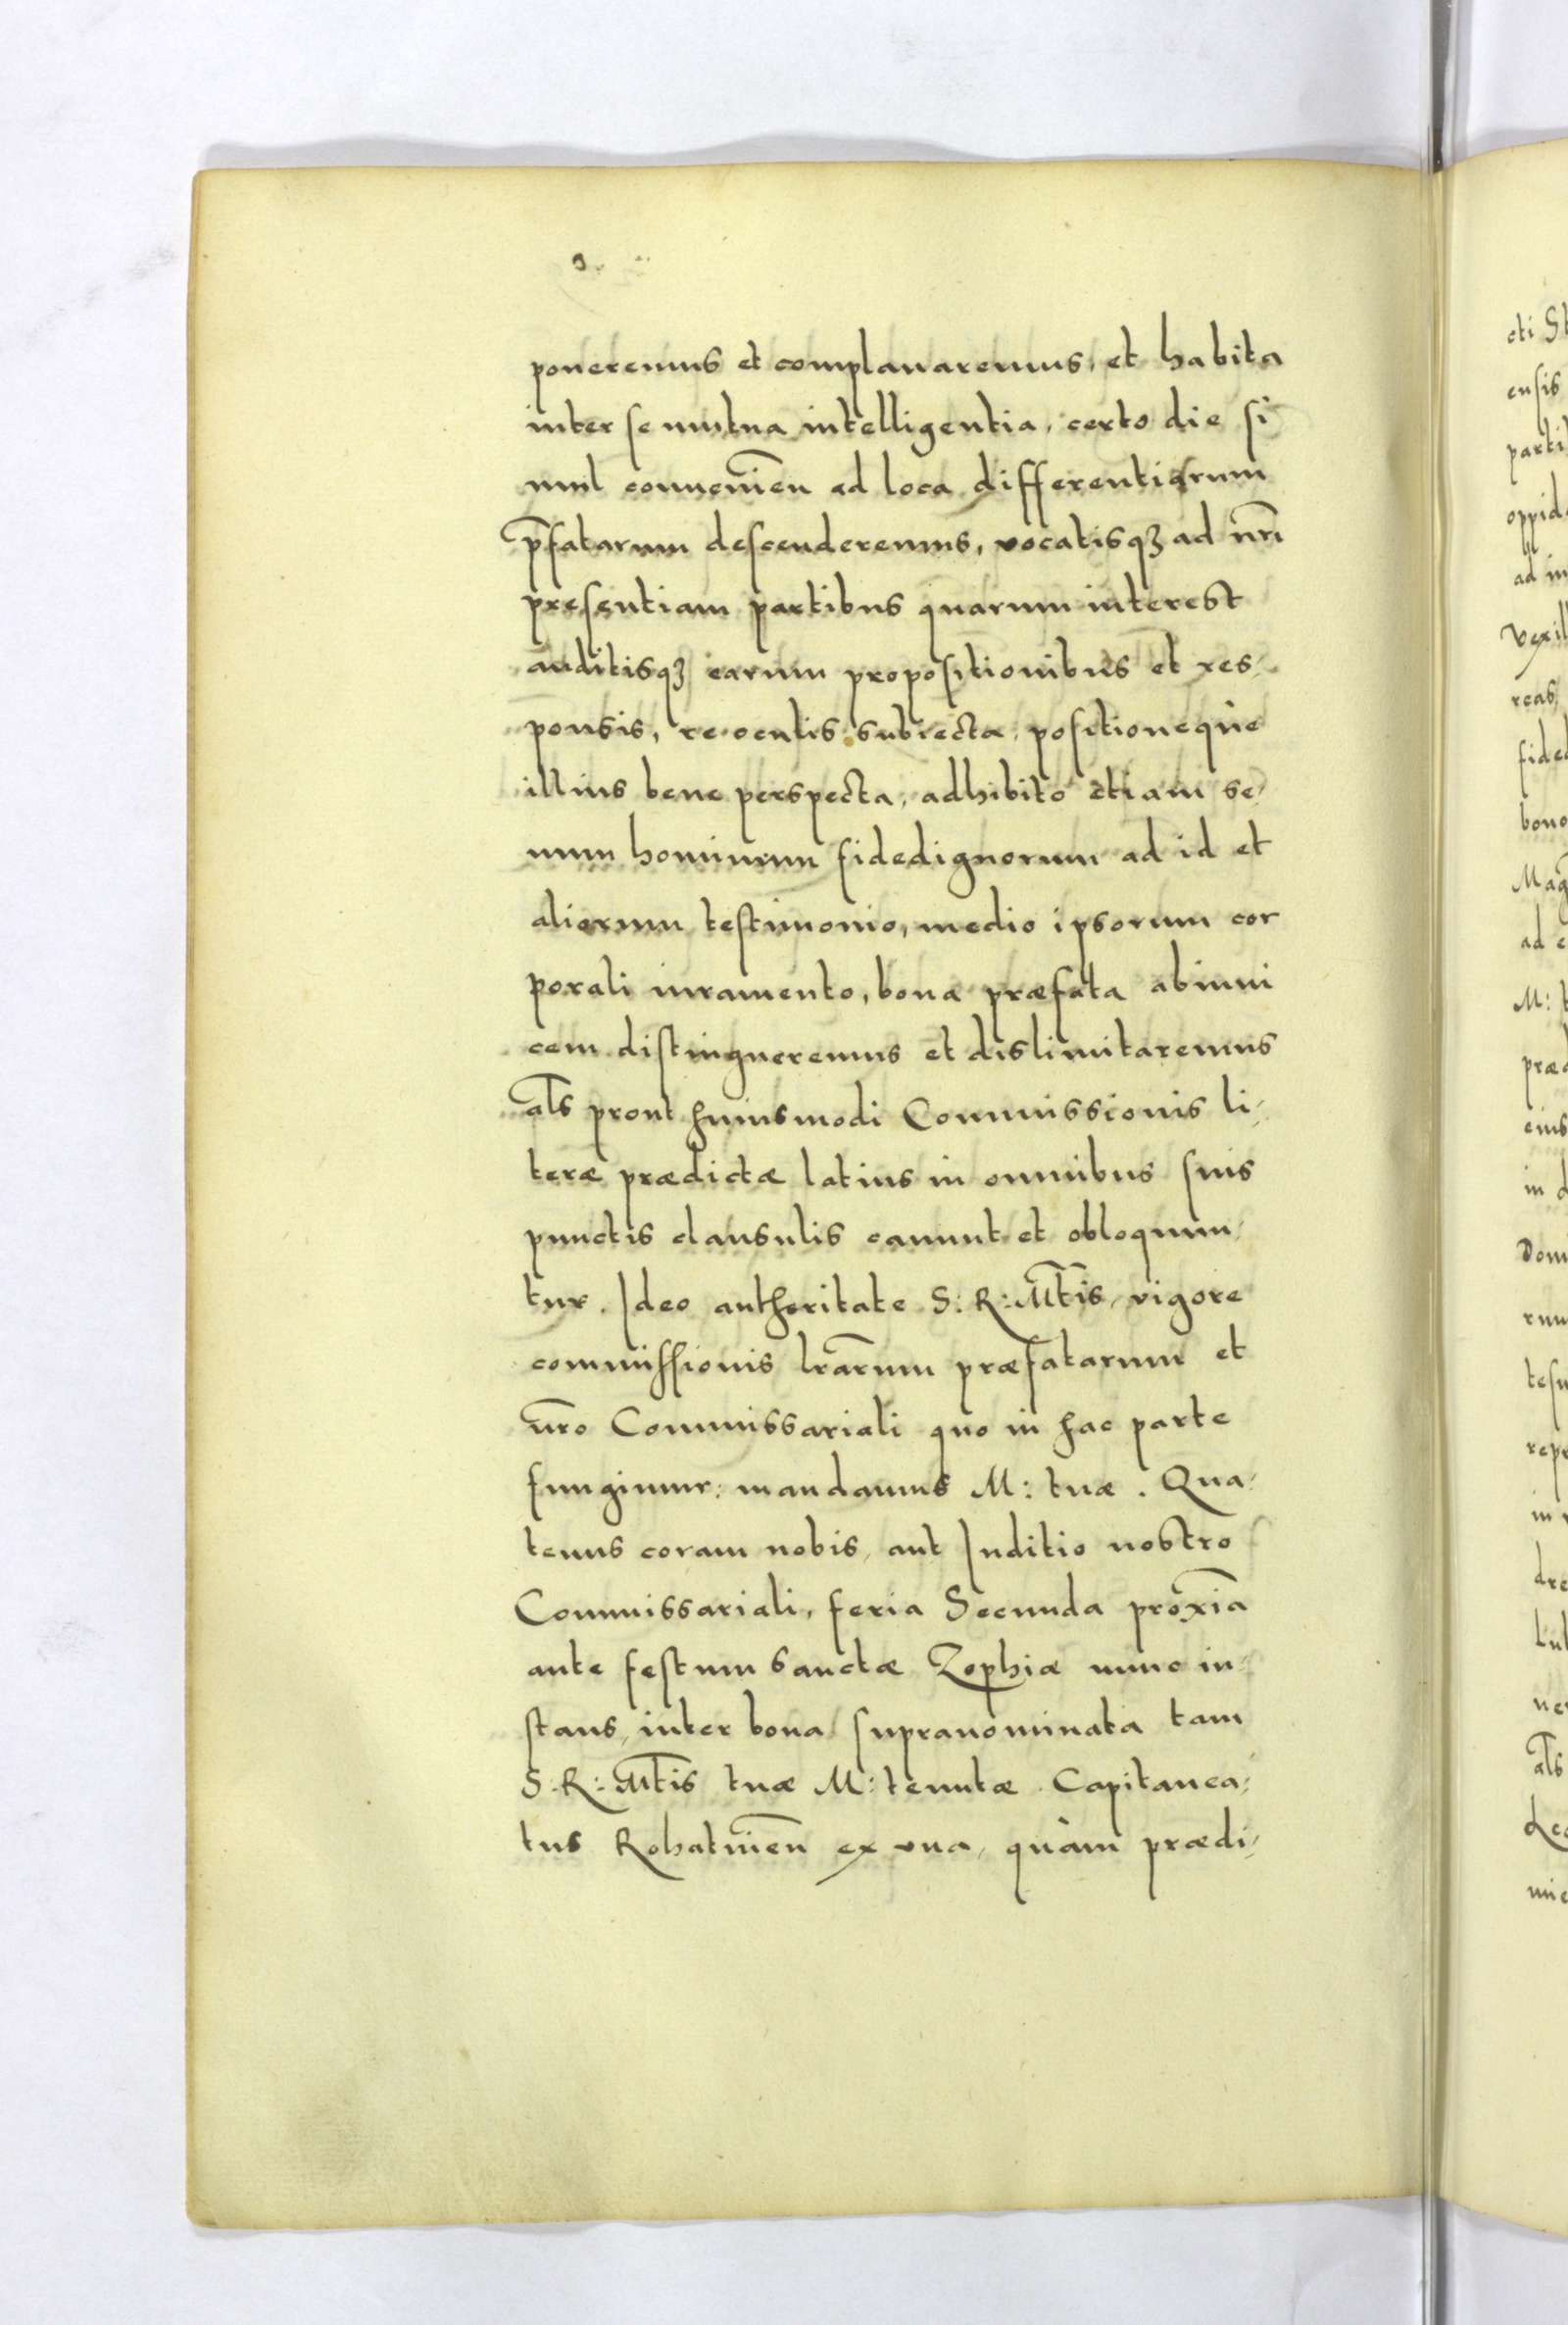 poneremus et complanaremus, et habita
inter se mutua intelligentia, certo die si
mul conuenien̄ ad loca differentiarum
p̄fatarum descenderemus, vocatisqꝫ ad nr̄i
presentiam partibus quarum interest
auditisqꝫ earum propositionibus et res-
ponsis, re oculis subiecta, positioneque
illius bene perspecta, adhibito etiam se-
num hominum fidedignorum ad id et
aliorum testimonio, medio ipsorum cor
porali iuramento, bona præfata abinui
cem distingueremus et dislimitaremus
al̄s prout huiusmodi Commissionis li-
teræ prædictæ latius in omnibus suis
punctis clausulis canunt et obloquun-
tur. Ideo autheritate S: R: Mt̄is, vigore
commissionis lr̄arum præfatarum et
nr̄o Commissariali quo in hac parte
fungimur: mandamus M: tuæ. Qua-
tenus coram nobis, aut Iuditio nostro
Commissariali, feria Secunda prox̄ia
ante festum sanctæ Zophiæ nunc in-
stans, inter bona supranominata tam
S. R: Mt̄is tuæ M: tenutæ Capitanea-
tus Rohatinen̄ ex vna, quàm prædi-
cti St
ensis
parti
oppid
ad in
vexil
reas,
fided
bono
Mag
ad e
M: t
præd
eius
in d
Domi
rum
testi
repr
in
dre
Lub
ner
al̄s
Leo
mie